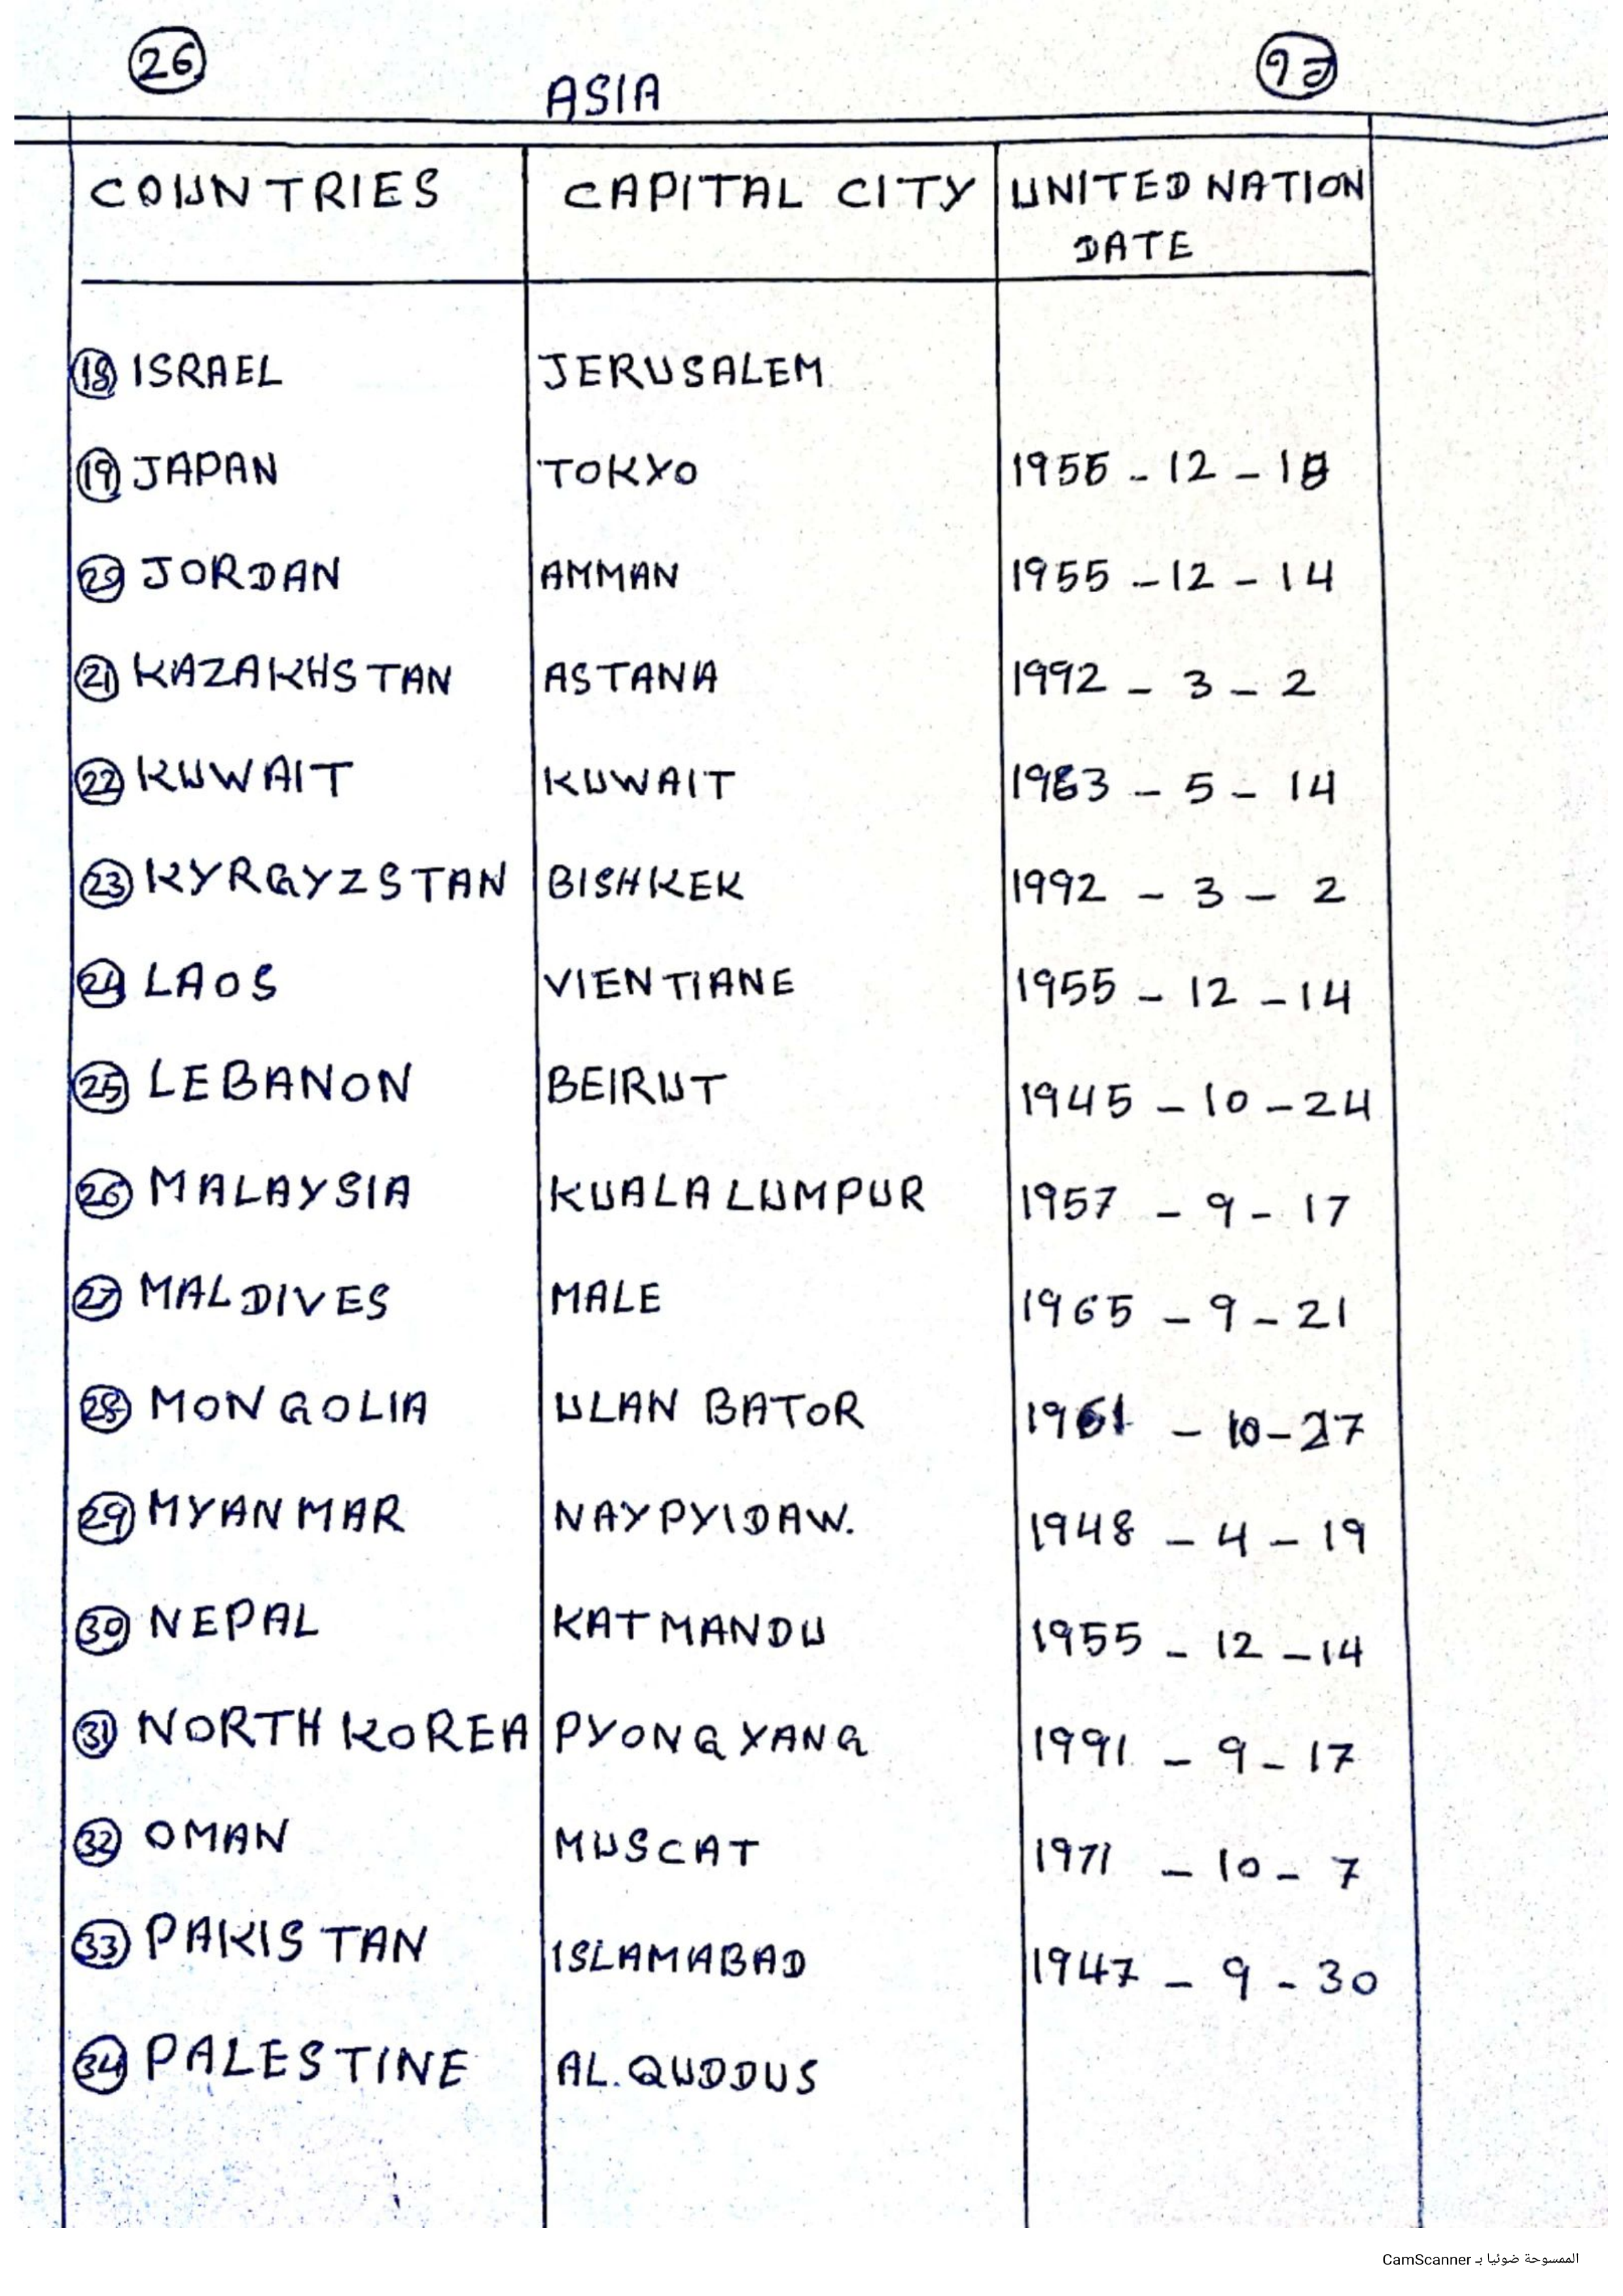 26
ASIA
COUNTRIES CAPITAL CITY UNITED NATION
DATE
18 ISRAEL JERUSALEM
19 JAPAN TOKYO 1956 - 12 - 18
20 JORDAN AMMAN 1955 - 12 - 14
21 KAZAKHSTAN ASTANA 1992 - 3 - 2
22 KUWAIT KUWAIT 1963 - 5 - 14
23 KYRGYZSTAN BISHKEK 1992 - 3 - 2
24 LAOS VIENTIANE 1955 - 12 - 14
25 LEBANON BEIRUT 1945 - 10 - 24
26 MALAYSIA KUALA LUMPUR 1957 - 9 - 17
27 MALDIVES MALE 1965 - 9 - 21
28 MONGOLIA ULAN BATOR 1961 - 10 - 27
29 MYANMAR NAYPYIDAW. 1948 - 4 - 19
30 NEPAL KATMANDU 1955 - 12 - 14
31 NORTH KOREA PYONGYANG 1991 - 9 - 17
32 OMAN MUSCAT 1971 - 10 - 7
33 PAKISTAN ISLAMABAD 1947 - 9 - 30
34 PALESTINE AL. QUDDUS
الممسوحة ضوئيا بـ CamScanner